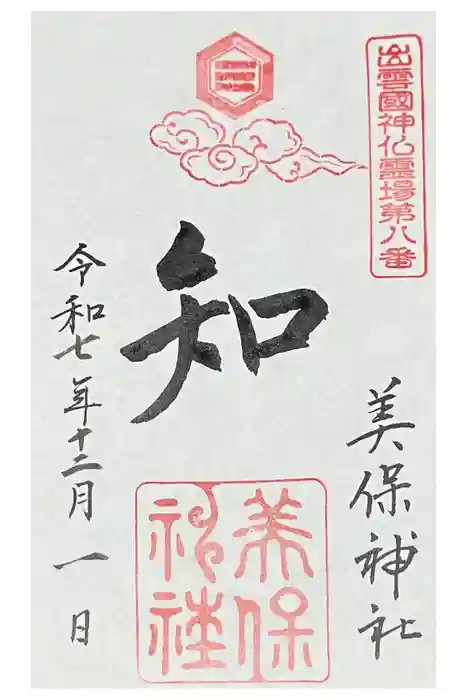 出雲國神仏霊場第八番
美保神社
知
美保
神社
令和七年十二月一日